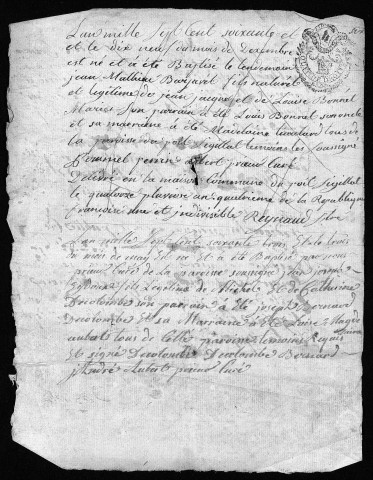 L'an mille sept cent soixante et
et le dix neuf du mois de decembre
est né et a été Baptisé le lendemain
jean Mathieu Barjavel fils naturel
et legitime de jean jacques et de Louise Bonnel
Mariés son parain a été Louis Bonnel son oncle
et sa marraine a été Madelaine tous de
la paroisse de poët Sigillat temoins les soussignés
prieur curé
Delivré en la maison Commune du poit Sigillat
le quatorze pluviose an quatrieme de la Republique
francoise une et indivisible Reynaud
L'an mille sept cent soixante trois et le trois
du mois de may est né et a été Baptisé par nous
prieur curé de la paroisse soussigné jean joseph
fils Legitime de Michel et de Catherine
Decolombe son parain a été joseph Bernard
Decolombe et sa Marraine a été Louise
aubert tous de cette paroisse temoins Requis
et signé Decolombe Decolombe Bernard
André Aubert prieur curé